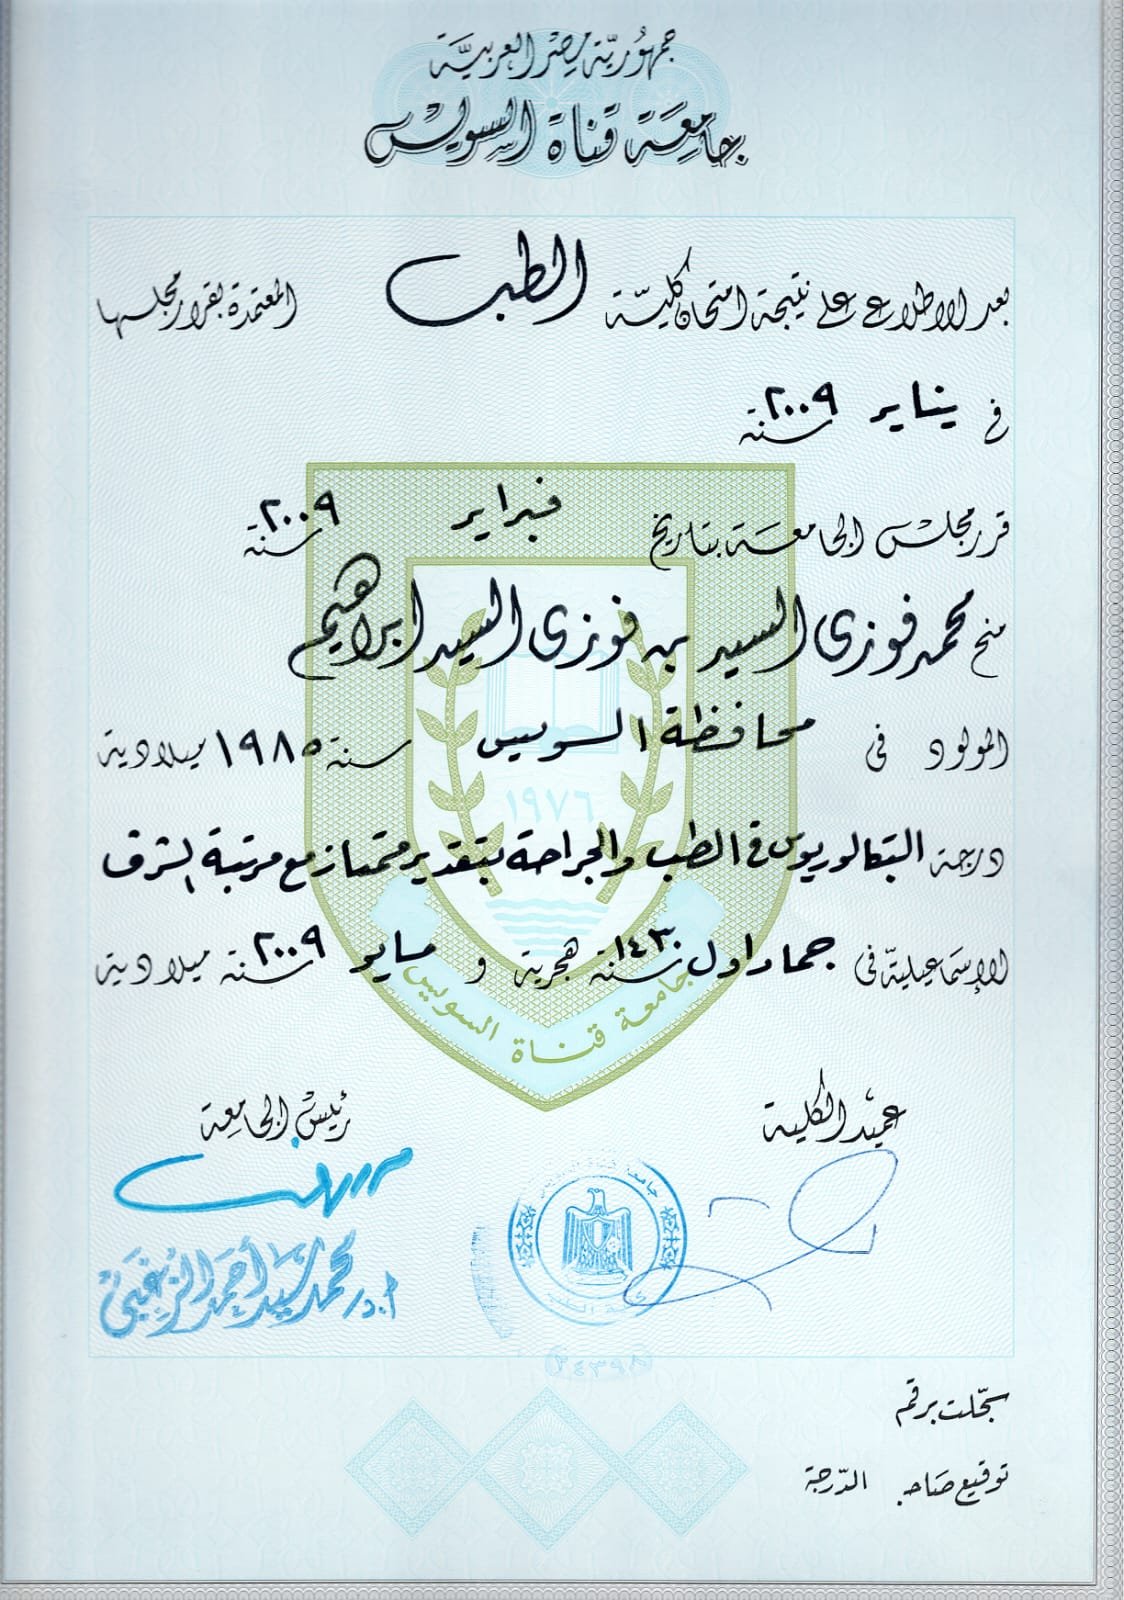 جمهورية مصر العربية
جامعة قناة السويس
بعد الاطلاع على نتيجة امتحان كلية الطب المعتمدة بقرار مجلسها
في يناير سنة ٢٠٠٩
قرر مجلس الجامعة بتاريخ فبراير سنة ٢٠٠٩
منح محمد فوزى السيد بن فوزى السيد ابراهيم
المولود فى محافظة السويس سنة ١٩٨٥ ميلادية
درجة البكالوريوس فى الطب والجراحة بتقدير ممتاز مع مرتبة الشرف
الإسماعيلية فى جماد اول سنة ١٤٣٠ هجرية و مايو سنة ٢٠٠٩ ميلادية
١٩٧٦
جامعة قناة السويس
عميد الكلية رئيس الجامعة
جامعة قناة السويس
كلية الطب
أ.د. محمد سيد أحمد الزغبى
٢٤٣٩٨
سجلت برقم
توقيع صاحب الدرجة